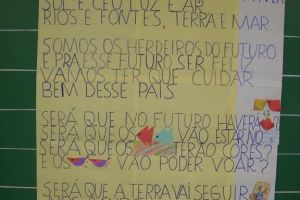 SOL E CÉU, LUZ E AR
RIOS E FONTES, TERRA E MAR
SOMOS OS HERDEIROS DO FUTURO
E PRA ESSE FUTURO SER FELIZ
VAMOS TER QUE CUIDAR
BEM DESSE PAÍS
SERÁ QUE NO FUTURO HAVERÁ
SERÁ QUE OS VÃO ESTAR NO
SERÁ QUE OS TERÃO CORES?
E OS VÃO PODER VOAR?
SERÁ QUE A TERRA VAI SEGUIR